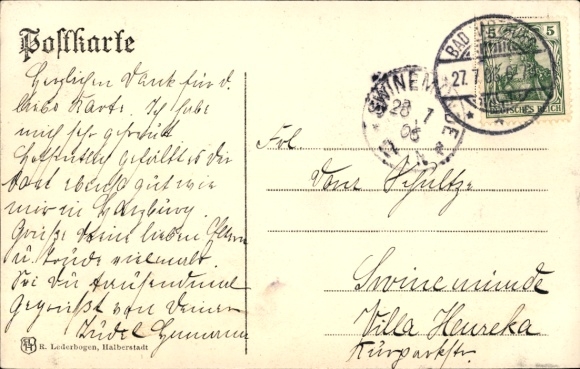 Postkarte
Herzlichen Dank für d.
liebe Karte. Ich habe
mich sehr gefreut
Hoffentlich gefällt es dir
dort ebenso gut wie
mir in Harzburg.
Grüße deine lieben Eltern
u. vielmals.
Sei du tausendmal
gegrüßt von deiner
R. Lederbogen, Halberstadt
BAD HARZBURG
27.7.
5 5
DEUTSCHES REICH
SWINEMÜNDE
28 7
06
N
Frl.
Schultze
Swinemünde
Villa Heureka
Kurparkstr.